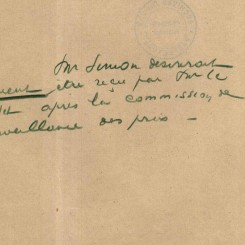 Mr Simon désirerait
être reçu par Mr le
après la commission de
surveillance des prix —